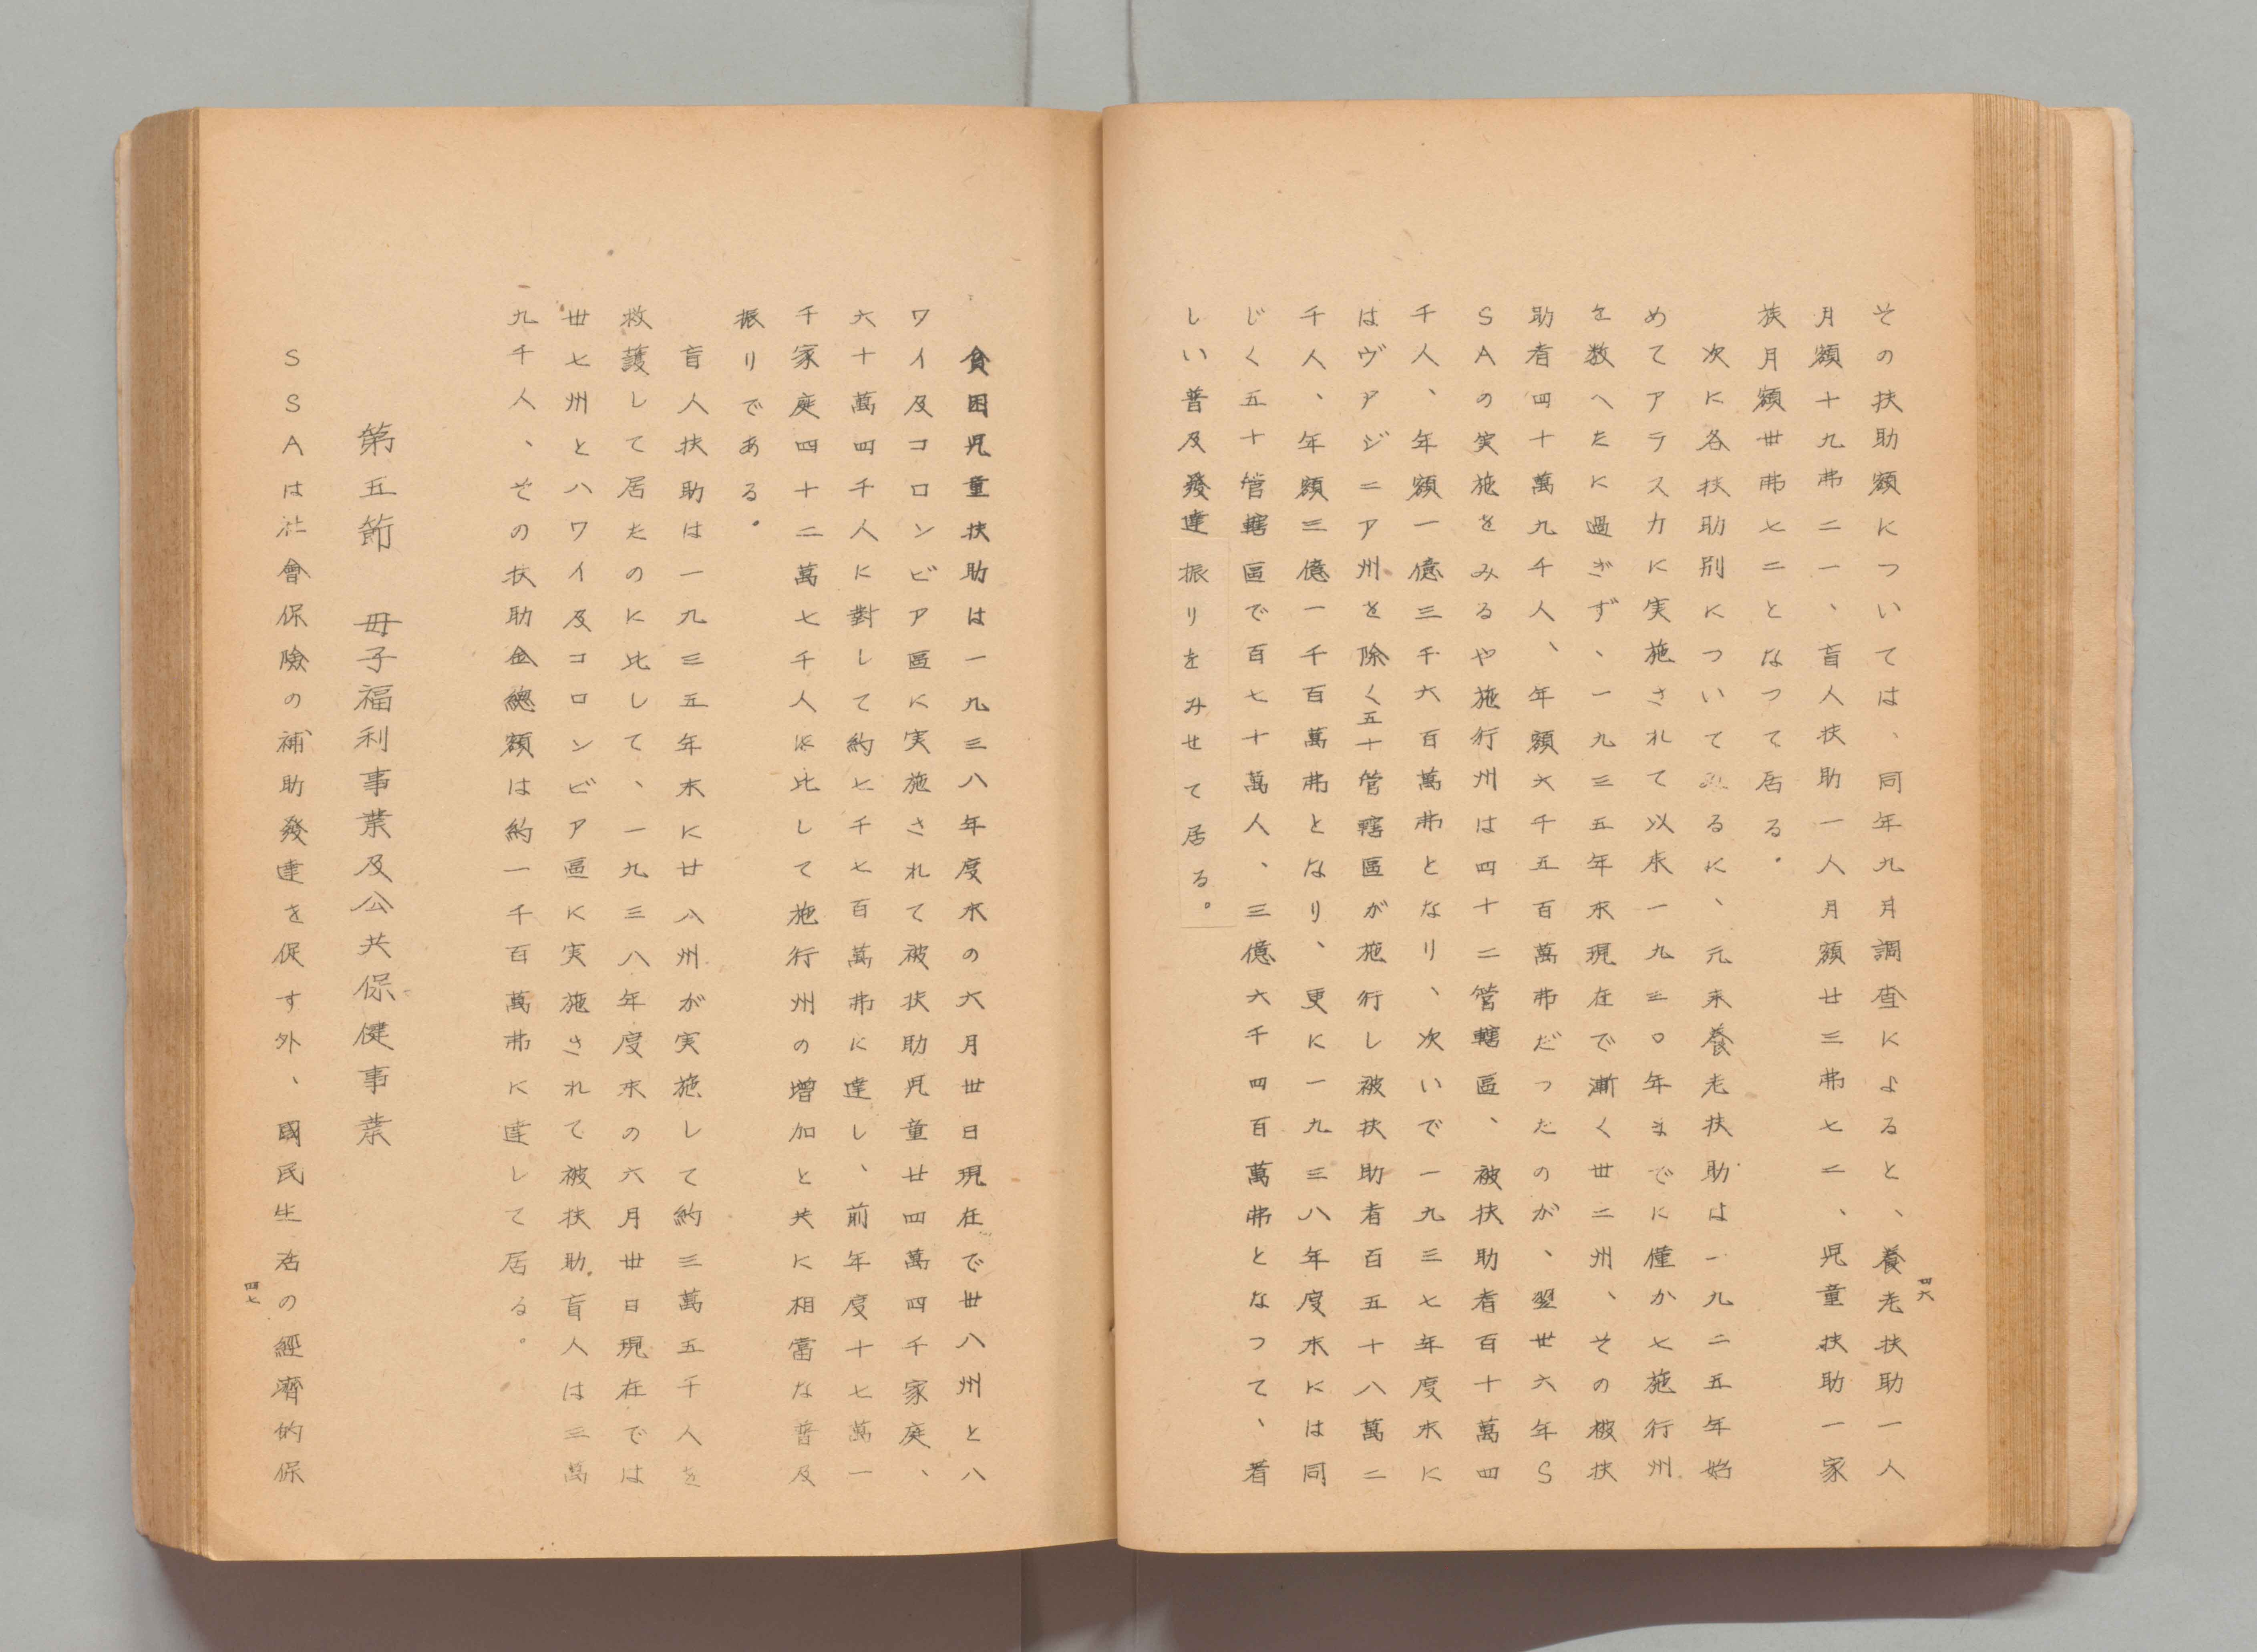 その扶助額については、同年九月調査によると、養老扶助一人
月額十九弗二一、盲人扶助一人月額廿三弗七二、児童扶助一家
族月額丗弗七二となつて居る。
次に各扶助別についてみるに、元来養老扶助は一九二五年始
めてアラスカに実施されて以来一九三〇年までに僅か七施行州
を数へたに過ぎず、一九三五年末現在で漸く丗二州、その被扶
助者四十萬九千人、年額六千五百萬弗だつたのが、翌丗六年S
SAの実施をみるや施行州は四十二管轄區、被扶助者百十萬四
千人、年額一億三千六百萬弗となり、次いで一九三七年度末に
はヴアジニア州を除く五十管轄區が施行し被扶助者百五十八萬二
千人、年額三億一千百萬弗となり、更に一九三八年度末には同
じく五十管轄區で百七十萬人、三億六千四百萬弗となつて、著
しい普及發達振りをみせて居る。
四六
貧困児童扶助は一九三八年度末の六月丗日現在で丗八州とハ
ワイ及コロンビア區に実施されて被扶助児童廿四萬四千家庭、
六十萬四千人に對して約七千七百萬弗に達し、前年度十七萬一
千家庭四十二萬七千人に比して施行州の増加と共に相當な普及
振りである。
盲人扶助は一九三五年末に廿八州が実施して約三萬五千人を
救護して居たのに比して、一九三八年度末の六月丗日現在では
丗七州とハワイ及コロンビア區に実施されて被扶助盲人は三萬
九千人、その扶助金總額は約一千百萬弗に達して居る。
第五節 母子福利事業及公共保健事業
SSAは社會保險の補助發達を促す外、國民生活の經濟的保
四七